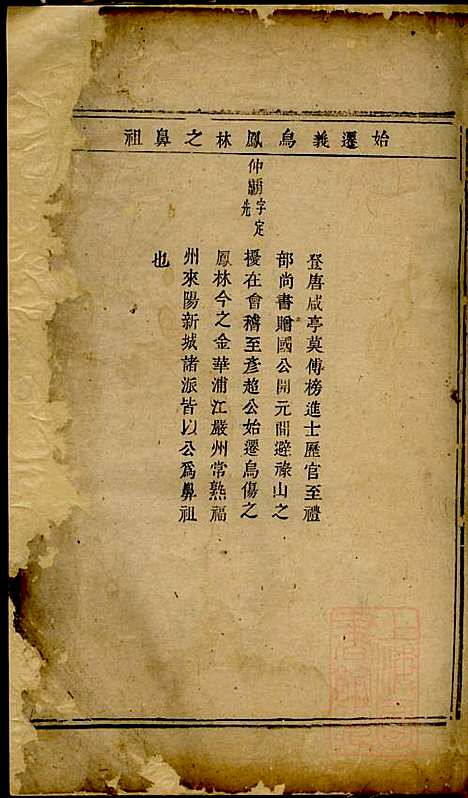 始遷義烏鳳林之鼻祖
仲顯字定先
登唐咸亨莫傅榜進士歷官至禮
部尚書贈國公開元間避祿山之
擾在會稽至彥超公始遷烏傷之
鳳林今之金華浦江嚴州常熟福
州來陽新城諸派皆以公爲鼻祖
也